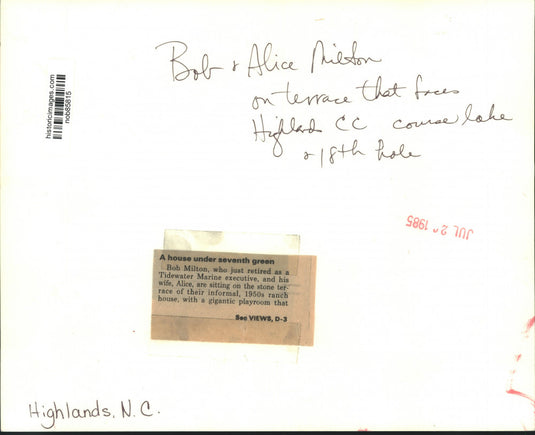 Bob & Alice Milton
on terrace that faces
Highlands CC course lake
& 18th hole
historicimages.com
nob85815
JUL 2 1985
A house under seventh green
Bob Milton, who just retired as a
Tidewater Marine executive, and his
wife, Alice, are sitting on the stone ter-
race of their informal, 1950s ranch
house, with a gigantic playroom that
See VIEWS, D-3
Highlands, N.C.